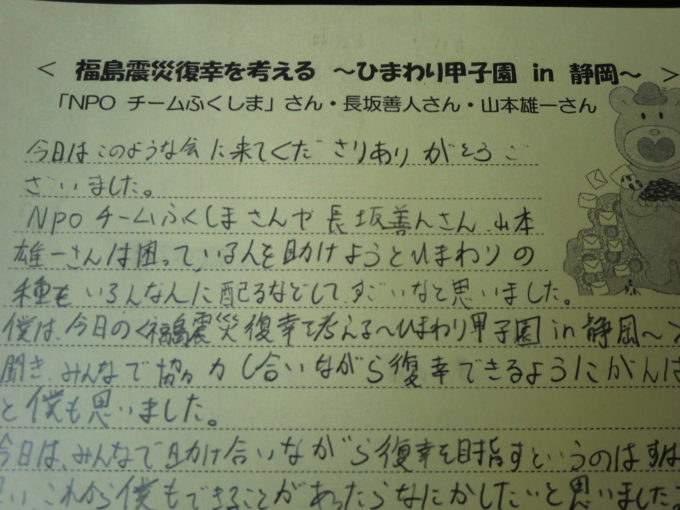 ＜ 福島震災復幸を考える ～ひまわり甲子園 in 静岡～ ＞
「NPO チームふくしま」さん・長坂善人さん・山本雄一さん
今日はこのような会に来てくださりありがとうご
ざいました。
NPO チームふくしまさんや長坂善人さん、山本
雄一さんは困っている人を助けようとひまわりの
種をいろんな人に配るなどしてすごいなと思いました。
僕は、今日の<福島震災復幸を考える～ひまわり甲子園in静岡～>
聞き、みんなで協力し合いながら復幸できるようにがんば
と僕も思いました。
今日は、みんなで助け合いながら復幸を目指すというのはすば
い、これから僕もできることがあったらなにかしたいと思いました。